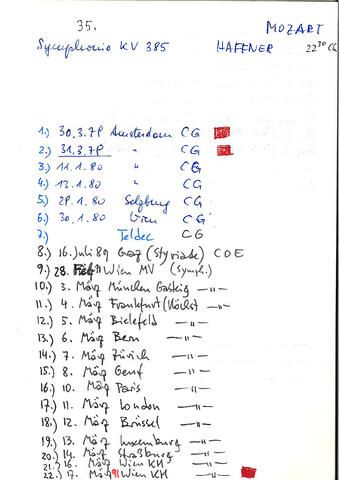 35. MOZART
Symphonie KV 385 HAFFNER 22³⁰ CG
1.) 30.3.79 Amsterdam CG
2.) 31.3.79 " CG
3.) 11.1.80 " CG
4.) 13.1.80 " CG
5.) 29.1.80 Salzburg CG
6.) 30.1.80 Wien CG
7.) Teldec CG
8.) 16. Juli 89 Graz (Styriade) COE
9.) 28. Wien MV (Symph.)
10.) 3. März München Gasteig —"—
11.) 4. März Frankfurt (Höchst) —"—
12.) 5. März Bielefeld —"—
13.) 6. März Bern —"—
14.) 7. März Zürich —"—
15.) 8. März Genf —"—
16.) 10. März Paris —"—
17.) 11. März London —"—
18.) 12. März Brüssel —"—
19.) 13. März Luxemburg —"—
20.) 14. März Straßburg —"—
21.) 16. März Wien KH —"—
22.) 17. März 91 Wien KH —"—